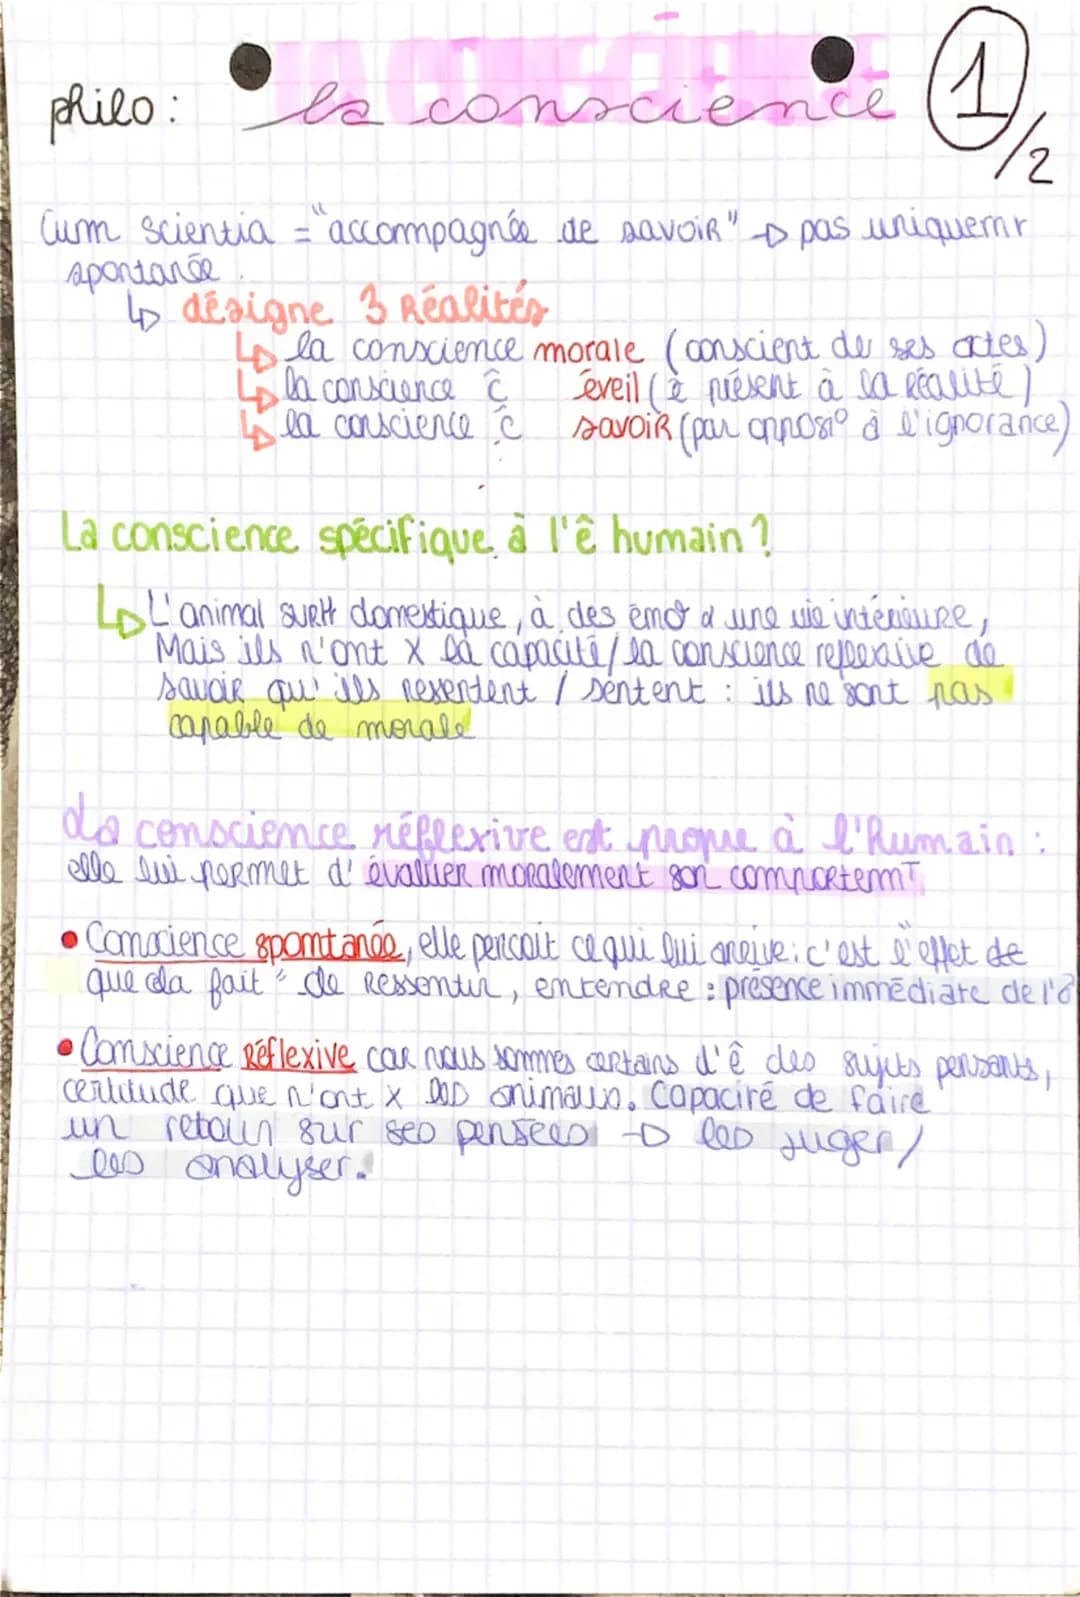 philo : la conscience 1/2
LA CONSCIENCE
Cum scientia = "accompagnée de savoir" → pas uniquemt
spontanée.
↳ désigne 3 Réalités
↳ la conscience morale (conscient de ses actes)
↳ la conscience c̄ éveil (ê présent à la réalité)
↳ la conscience c̄ savoir (par opposi° à l'ignorance)
La conscience spécifique à l'ê humain ?
↳ L'animal surtt domestique, à des émo° & une vie intérieure,
Mais ils n'ont X la capacité / la conscience reflexive de
savoir qu'ils resentent / sentent : ils ne sont pas
capable de morale
La conscience réflexive est propre à l'humain :
elle lui permet d'évaluer moralement son comportemt.
• Conscience spontanée, elle percoit ce qui lui arrive : c'est l'"effet de
que cela fait" de Ressentir, entendre : présence immédiate de l'
• Conscience Réflexive car nous sommes certains d'ê des sujets pensants,
certitude que n'ont X les animaux. Capacité de faire
un retour sur ses pensées → les juger /
les analyser.